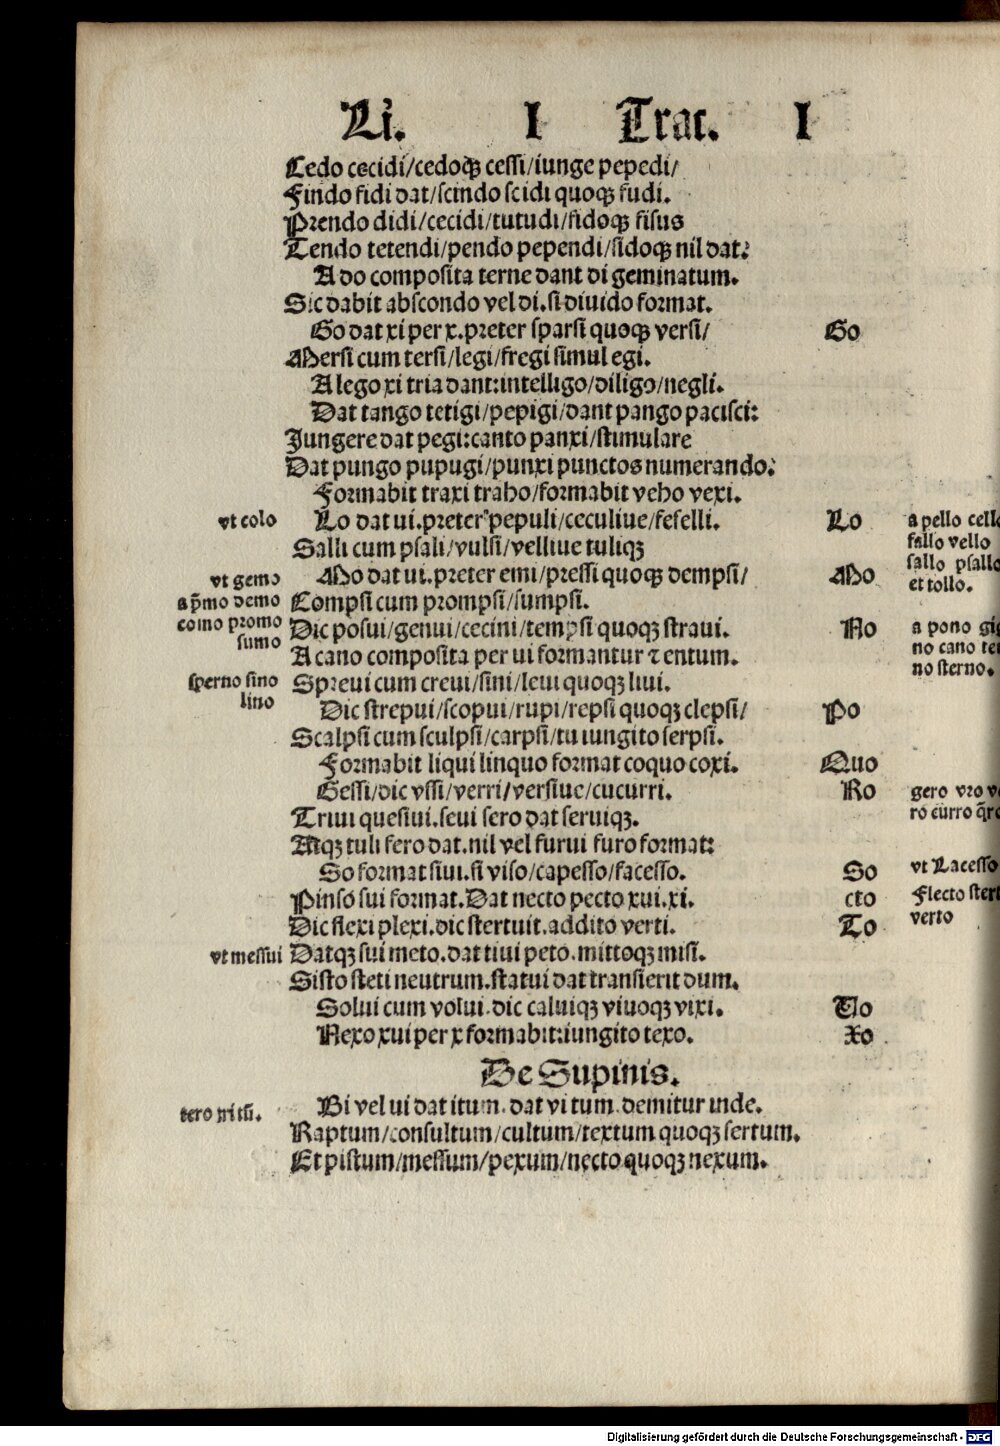 Li. I Trac. I
Cedo cecidi/cedoqꝫ cessi/iunge pepedi/
Findo fidi dat/scindo scidi quoqꝫ fudi.
Prendo didi/cecidi/tutudi/fidoqꝫ fisus
Tendo tetendi/pendo pependi/sidoqꝫ nil dat:
A do composita terne dant di geminatum.
Sic dabit abscondo vel di.si diuido format.
Go dat xi per x.preter sparsi quoqꝫ versi/ Go
Mersi cum tersi/legi/fregi simul egi.
A lego xi tria dant:intelligo/diligo/negli.
Dat tango tetigi/pepigi/dant pango pacisci:
Jungere dat pegi:canto panxi/stimulare
Dat pungo pupugi/punxi punctos numerando:
Formabit traxi traho/formabit veho vexi.
vt colo Lo dat ui.preter pepuli/ceculiue/fefelli. Lo a pello cello
Salli cum psali/vulsi/velliue tuliqꝫ fallo vello
sallo psallo
vt gemo Mo dat ui.preter emi/pressi quoqꝫ dempsi/ Mo et tollo.
a p̄mo demo Compsi cum prompsi/sumpsi.
como promo Dic posui/genui/cecini/tempsi quoqꝫ straui. No a pono gig
sumo A cano composita per ui formantur ⁊ entum. no cano te
no sterno.
sperno sino Spreui cum creui/sini/leui quoqꝫ liui.
lino Dic strepui/scopui/rupi/repsi quoqꝫ clepsi/ Po
Scalpsi cum sculpsi/carpsi/tu iungito serpsi.
Formabit liqui linquo format coquo coxi. Quo
Gessi/dic vssi/verri/versiue/cucurri. Ro gero vro v
Triui quesiui.seui sero dat seruiqꝫ. ro curro q̄ro
Atqꝫ tuli fero dat.nil vel furui furo format:
So format siui.si viso/capesso/facesso. So vt Lacesso
Pinso sui format.Dat necto pecto xui.xi. cto Flecto stert
Dic flexi plexi.dic stertuit.addito verti. To verto
vt messui Datqꝫ sui meto.dat tiui peto.mittoqꝫ misi.
Sisto steti neutrum.statui dat transierit dum.
Solui cum volui.dic caluiqꝫ viuoqꝫ vixi. Uo
Nexo xui per x formabit:iungito texo. Xo
De Supinis.
tero Bi vel ui dat itum.dat vi tum.demitur inde.
Raptum/consultum/cultum/textum quoqꝫ sertum.
Et pistum/messum/pexum/necto quoqꝫ nexum.
Digitalisierung gefördert durch die Deutsche Forschungsgemeinschaft - DFG